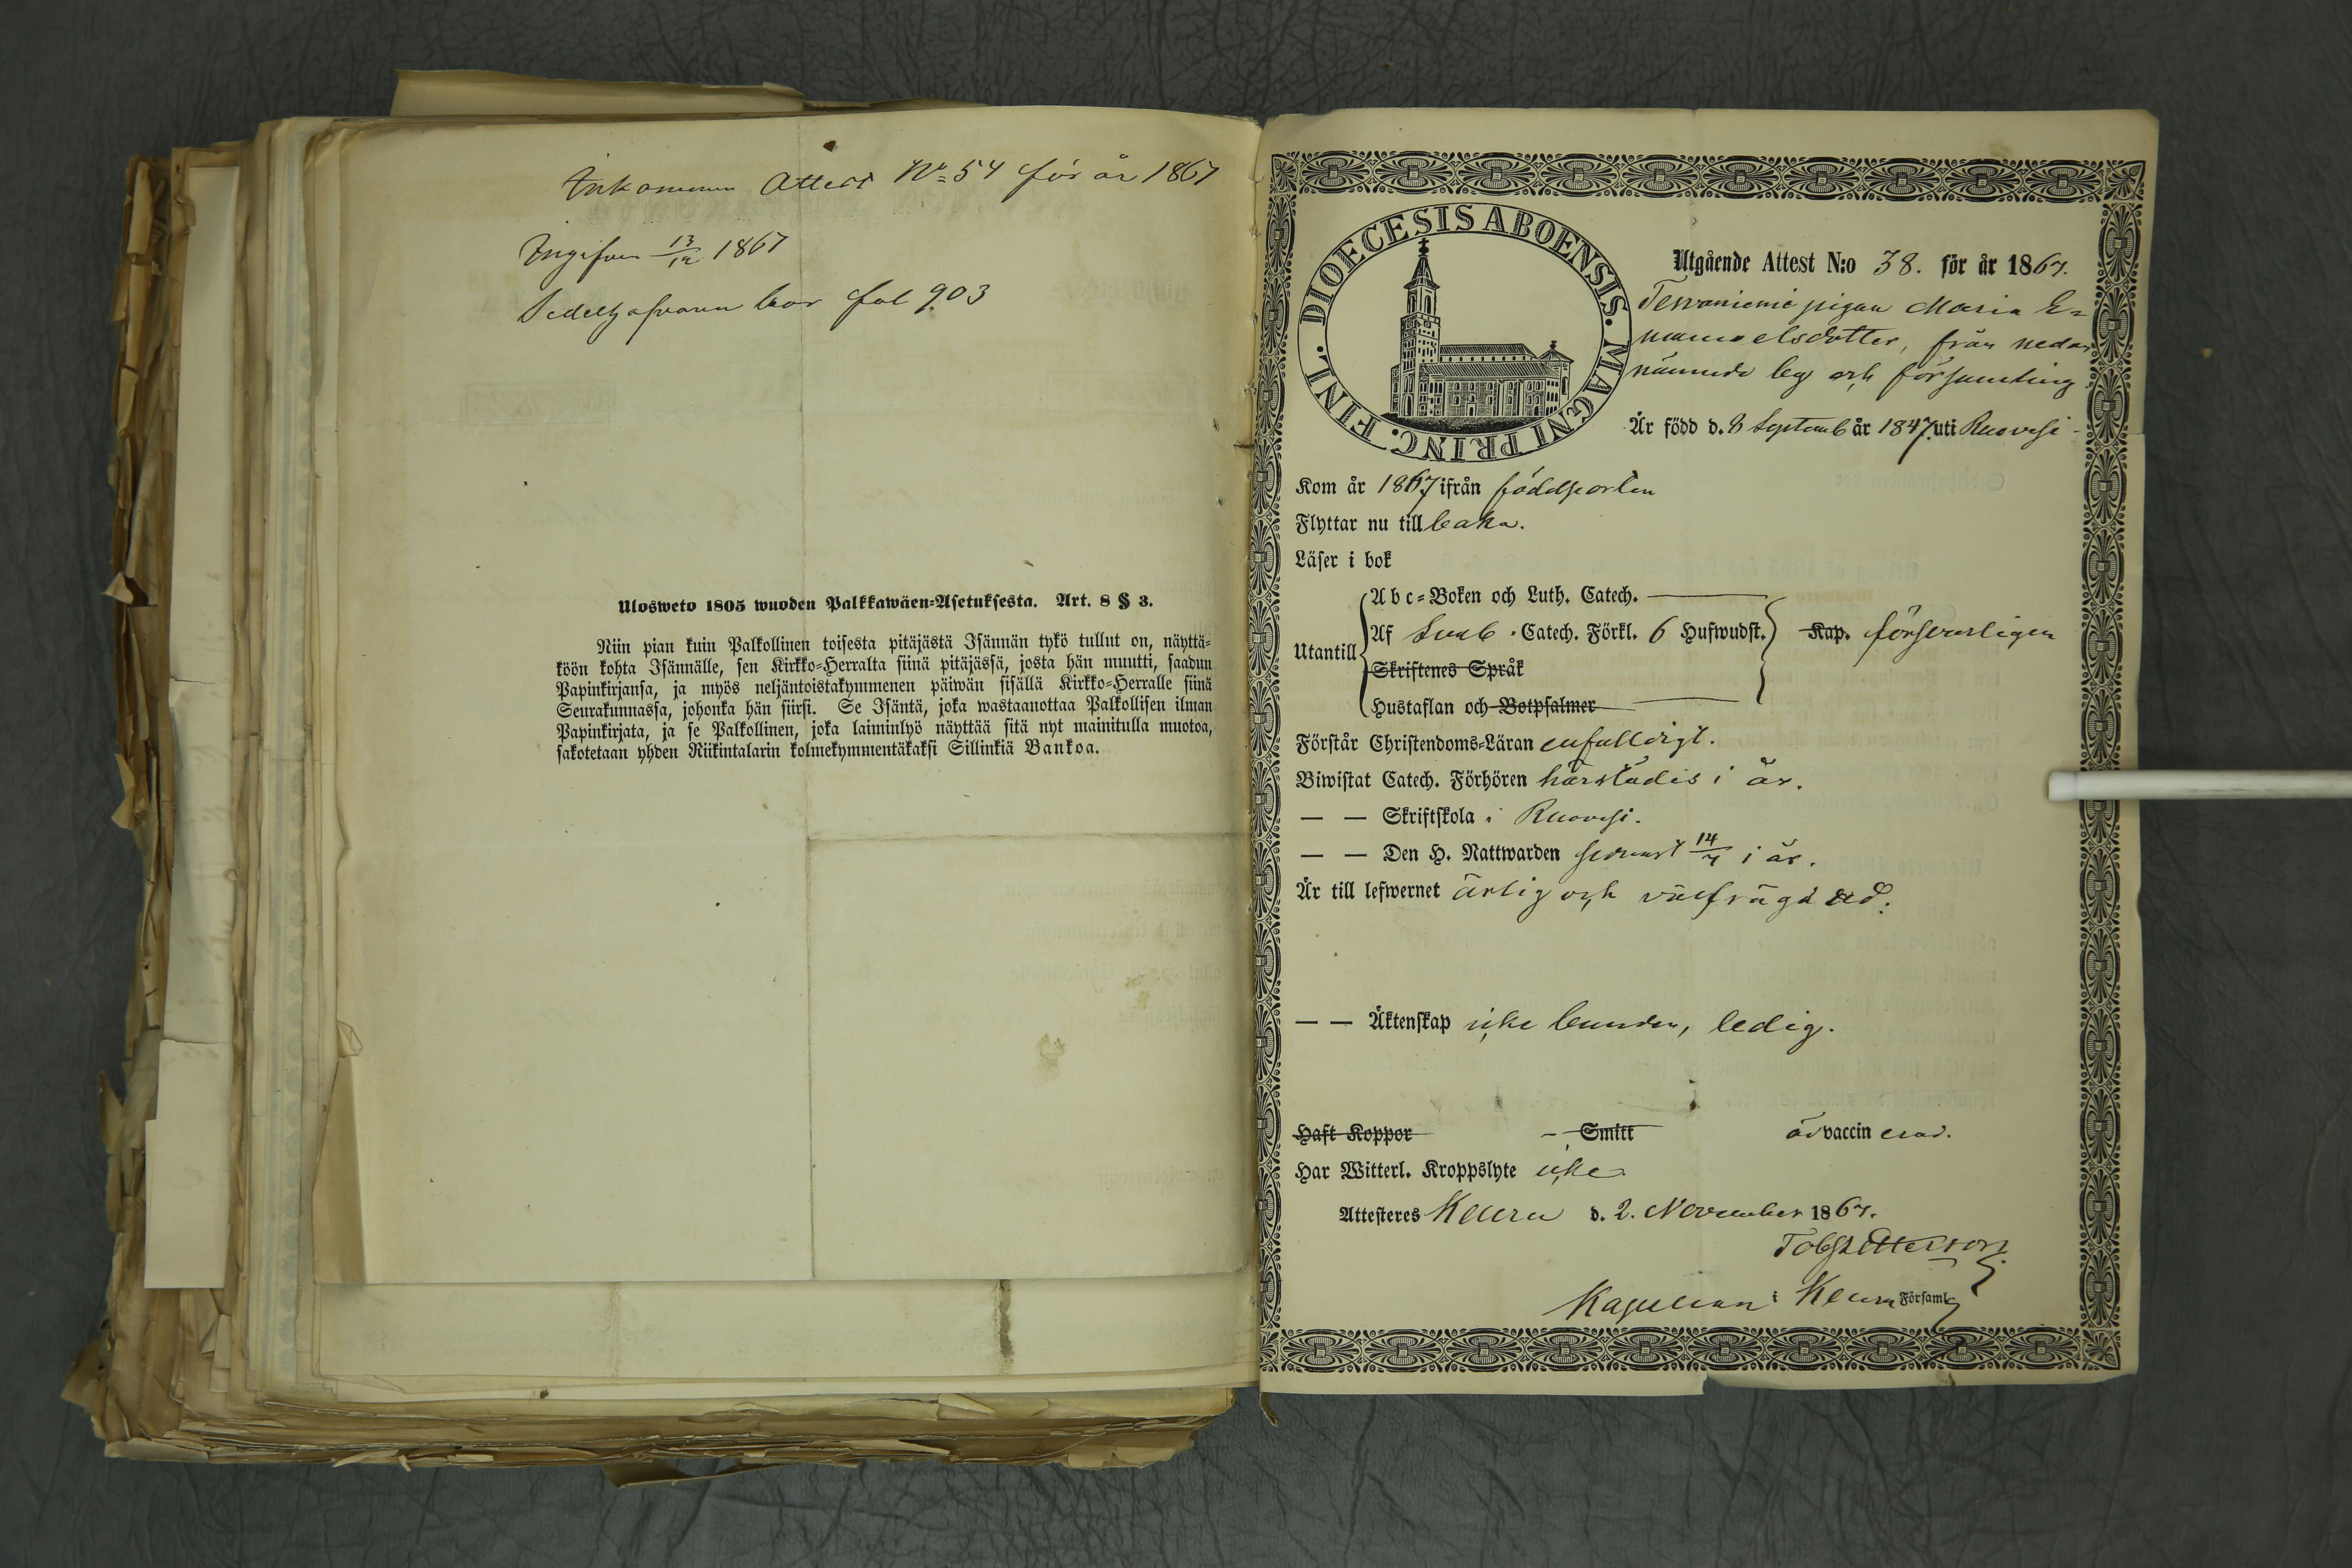 Inkommen Attest No 54 för år 1867
Ingifven 13/12 1867
Sedelhafvaren bor fol 903
Ulosweto 1805 wuoden Palkkawäen-Asetuksesta. Art. 8 § 3.
Niin pian kuin Palkollinen toisesta pitäjästä Isännän tykö tullut on, näyttä-
köön kohta Isännälle, sen Kirkko-Herralta siinä pitäjässä, josta hän muutti, saadun
Papinkirjansa, ja myös neljäntoistakymmenen päiwän sisällä Kirkko-Herralle siinä
Seurakunnassa, johonka hän siirsi. Se Isäntä, joka wastaanottaa Palkollisen ilman
Papinkirjata, ja se Palkollinen, joka laiminlyö näyttää sitä nyt mainitulla muotoa,
sakotetaan yhden Riikintalarin kolmekymmentäkaksi Sillinkiä Bankoa.
DIOECESIS ABOENSIS. MAGNI PRINC. FINL.
Utgående Attest N:o 38. för år 1867.
Tervaniemi pigan Maria E-
manuelsdotter, från nedan
nämnde by och församling
Är född d. 8 Septemb år 1847 uti Ruovesi
Kom år 1867 ifrån födelseorten
Flyttar nu till baka.
Läser i bok
Abc-Boken och Luth. Catech.
Utantill Af Sveb. Catech. Förkl. 6 Hufwudst. Kap. försvarligen
Skriftenes Språk
Hustaflan och Botpsalmer
Förstår Christendoms-Läran enfaldigt.
Biwistat Catech. Förhören härstädes i år.
— — Skriftskola i Ruovesi.
— — Den H. Nattwarden senast 14/7 i år.
Är till lefwernet ärlig och välfrägdad.
— — Äktenskap icke bunden, ledig.
Haft Koppor - Smitt är vaccinerad.
Har Witterl. Kroppslyte icke
Attesteres Keuru d. 2. November 1867.
Kapellan i Keuru Församlg